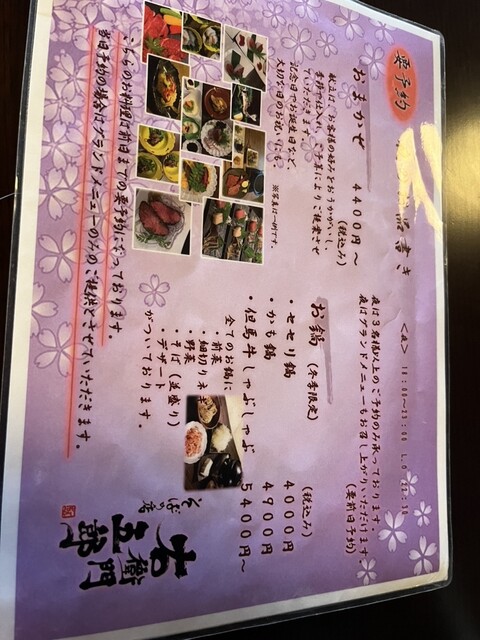 要予約
品書き
<夜> 18:00~23:00 L.O 22:30
夜は3名様以上のご予約のみ承っております。
夜はグランドメニューもお召し上がりいただけます。
(要前日予約)
おまかせ 4400円~
(税込み)
献立は、お客様の好みをおうかがいし、
季節で仕入れ、ご予算によりご提案させ
ていただきます。
記念日でお誕生日など、
大切な日のお祝いにも。
※写真は一例です。
お鍋 (冬季限定)
(税込み)
・セセリ鍋 4000円
・かも鍋 4900円
・但馬牛しゃぶしゃぶ 5400円~
全てのお鍋に
・前菜
・細切りネギ
・野菜
・そば(並盛り)
・デザート
がついております。
こちらのお料理は前日までの要予約になっております。
当日予約の場合はグランドメニューのみのご提供とさせていただきます。
そばの店
五郎右衛門